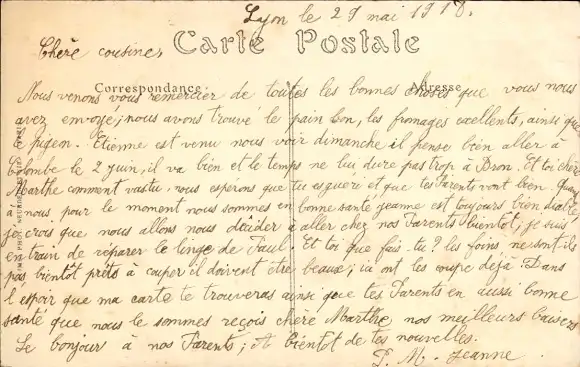 Lyon le 29 mai 1918.
Chère cousine,
Carte Postale
Correspondance Adresse
Nous venons vous remercier de toutes les bonnes choses que vous nous
avez envoyé; nous avons trouvé le pain bon, les fromages excellents, ainsi que
le pigeon. Etienne est venu nous voir dimanche il pense bien aller à
Colombe le 2 juin, il va bien et le temps ne lui dure pas trop à Bron. Et toi chère
Marthe comment vastu, nous espérons que tu es guérie et que tes Parents vont bien. Quant
à nous, pour le moment nous sommes en bonne santé jeanne est toujours bien
je crois que nous allons nous décider à aller chez nos Parents bientôt, je suis
en train de réparer le linge de Paul. Et toi que fais-tu? les foins ne sont ils
pas bientôt prêts à couper il doivent etre beaux; ici ont les coupe déjà. Dans
l'espoir que ma carte te trouveras ainsi que tes Parents en aussi bonne
santé que nous le sommes reçois chère Marthe nos meilleurs baisers
Le bonjour à nos Parents; A bientôt de tes nouvelles.
P. M. Jeanne